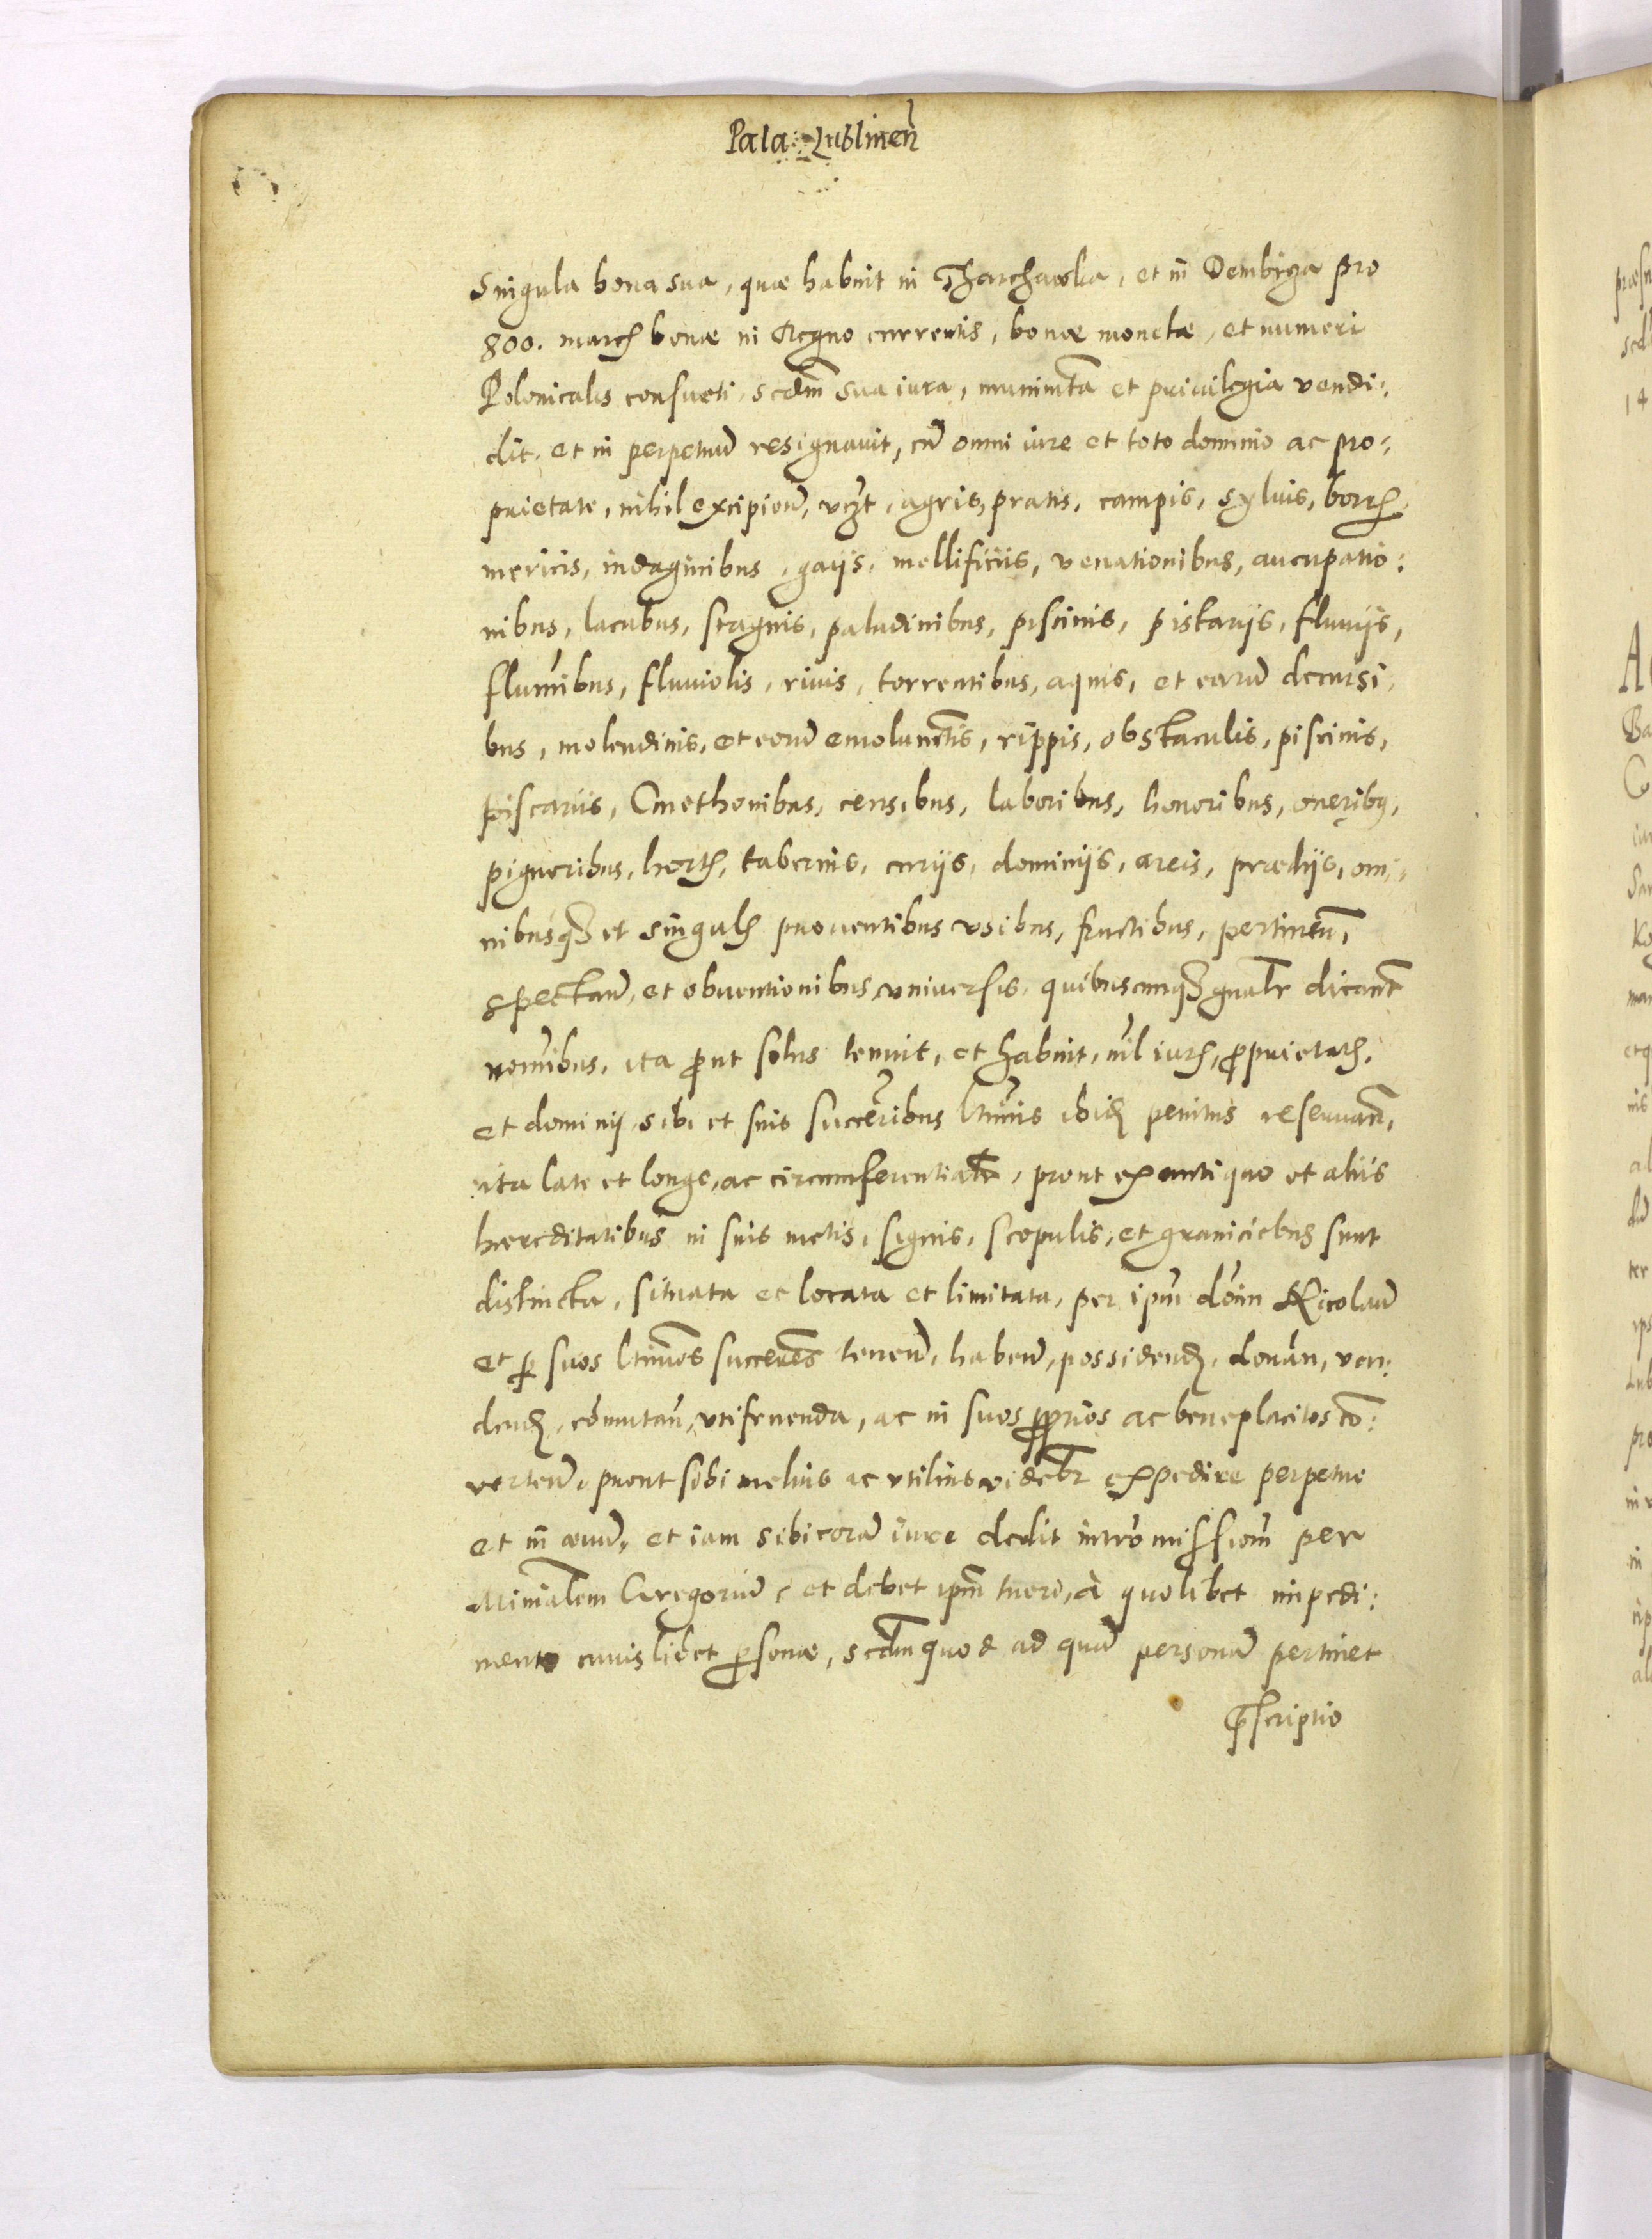 Pala: Lublinen̄
Singula bona sua, quæ habuit in Tharchawka, et in Dembiza pro
800. march bonæ in Regno currentis, bonæ monetæ, et numeri
Polonicalis consueti, scdm̄ sua iura, munimt̄a et priuilegia vendi:
dit, et in perpetuū resignauit, cū omni iure et toto dominio ac pro:
prietate, nihil excipiend, vzt, agris, pratis, campis, syluis, borr
mericis, indaginibus, gaijs, mellificiis, venationibus, aucupatio:
nibus, lacubus, stagnis, paludinibus, piscinis, piskarijs, fluuijs,
flum̄ibus, fluuiolis, riuis, torrentibus, aquis, et earū decursi
bus, molendinis, et eorū emolumn̄tis, rippis, obstaculis, piscinis,
piscariis, Cmethonibus, censibus, laboribus, honoribus, oneribq,
pigneribus, hort, tabernis, curijs, dominijs, areis, prædijs, om
nibusq3 et singul prouentibus vsibus, fructibus, pertinen̄,
spectan̄, et obuentionibus vniuersis, quibuscunq3 gnalr̄ dicant̄
nom̄ibus, ita ꝓut solus tenuit, et habuit, nil iur, ꝓprietat,
et dominij sibi et suis succ̄oribus ltimis ibid penitus reseruan̄,
ita late et longe, ac circumferentialr̄, prout ex antiquo et aliis
hæreditatibus in suis metis, signis, scopulis, et graniciebus sunt
distincta, situata et locata et limitata, per ipm̄ dom̄ Nicolaū
et ꝑ suos ltimos succōres tenend, habend, possidend, donan̄, ven:
dend, com̄utan̄, vtifruenda, ac in suos ꝓprios ac beneplacitos cō:
vertend, prout sibi melius ac vtilius videbr̄ expedire perpetue
et in æuū, et iam sibi corā iure dedit intromissiom̄ per
Minialem Gregoriū, et debet ipm̄ tueri, à quolibet impedi:
mento cuiuslibet ꝑsonæ, scdm̄ quod ad quā personā pertinet
p̄scriptio